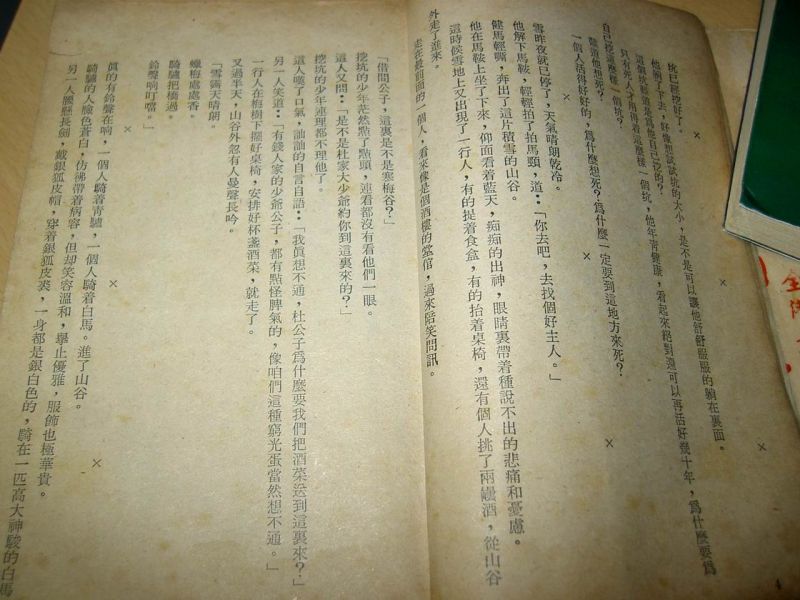 坑已經挖好了。
他躺了下去,好像想試試坑的大小,是不是可以讓他舒舒服服的躺在裏面。
這個坑難道是爲他自己挖的?
只有死人才用得着這麼樣一個坑,他年青健康,看起來絕對還可以再活好幾十年,爲什麼要爲
自己挖這麼樣一個坑?
難道他想死?
一個人活得好好的,爲什麼想死?爲什麼一定要到這地方來死?
×　×　×
雪昨夜就已停了,天氣晴朗乾冷。
他解下馬鞍,輕輕拍了拍馬頸,道:「你去吧,去找個好主人。」
健馬輕嘶,奔出了這片積雪的山谷。
他在馬鞍上坐了下來,仰面看着藍天,痴痴的出神,眼睛裏帶着種說不出的悲痛和憂慮。
這時候雪地上又出現了一行人,有的提着食盒,有的抬着桌椅,還有個人挑了兩罎酒,從山谷
外走了進來。
走在最前面的一個人,看來像是個酒樓的堂倌,過來陪笑問訊。
「借問公子,這裏是不是寒梅谷?」
挖坑的少年茫然點了點頭,連看都沒有看他們一眼。
這人又問:「是不是杜家大少爺約你到這裏來的?」
挖坑的少年連理都不理他了。
這人嘆了口氣,訕訕的自言自語:「我眞想不通,杜公子爲什麼要我們把酒菜送到這裏來?」
另一人笑道:「有錢人家的少爺公子,都有點怪脾氣的,像咱們這種窮光蛋當然想不通。」
一行人在梅樹下擺好桌椅,安排好杯盞酒菜,就走了。
又過半天,山谷外忽有人曼聲長吟。
「雪霽天晴朗。
蠟梅處處香。
騎驢把橋過。
鈴聲响叮噹。」
×　×　×
眞的有鈴聲在响,一個人騎着青驢,一個人騎着白馬。進了山谷。
騎驢的人臉色蒼白,仿彿帶着病容,但却笑容溫和,舉止優雅,服飾也極華貴。
另一人腰懸長劍,戴銀狐皮帽,穿着銀狐皮裘,一身都是銀白色的,騎在一匹高大神駿的白馬
4